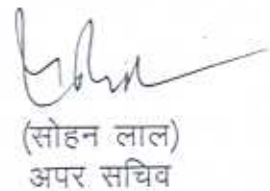 (सोहन लाल)
अपर सचिव